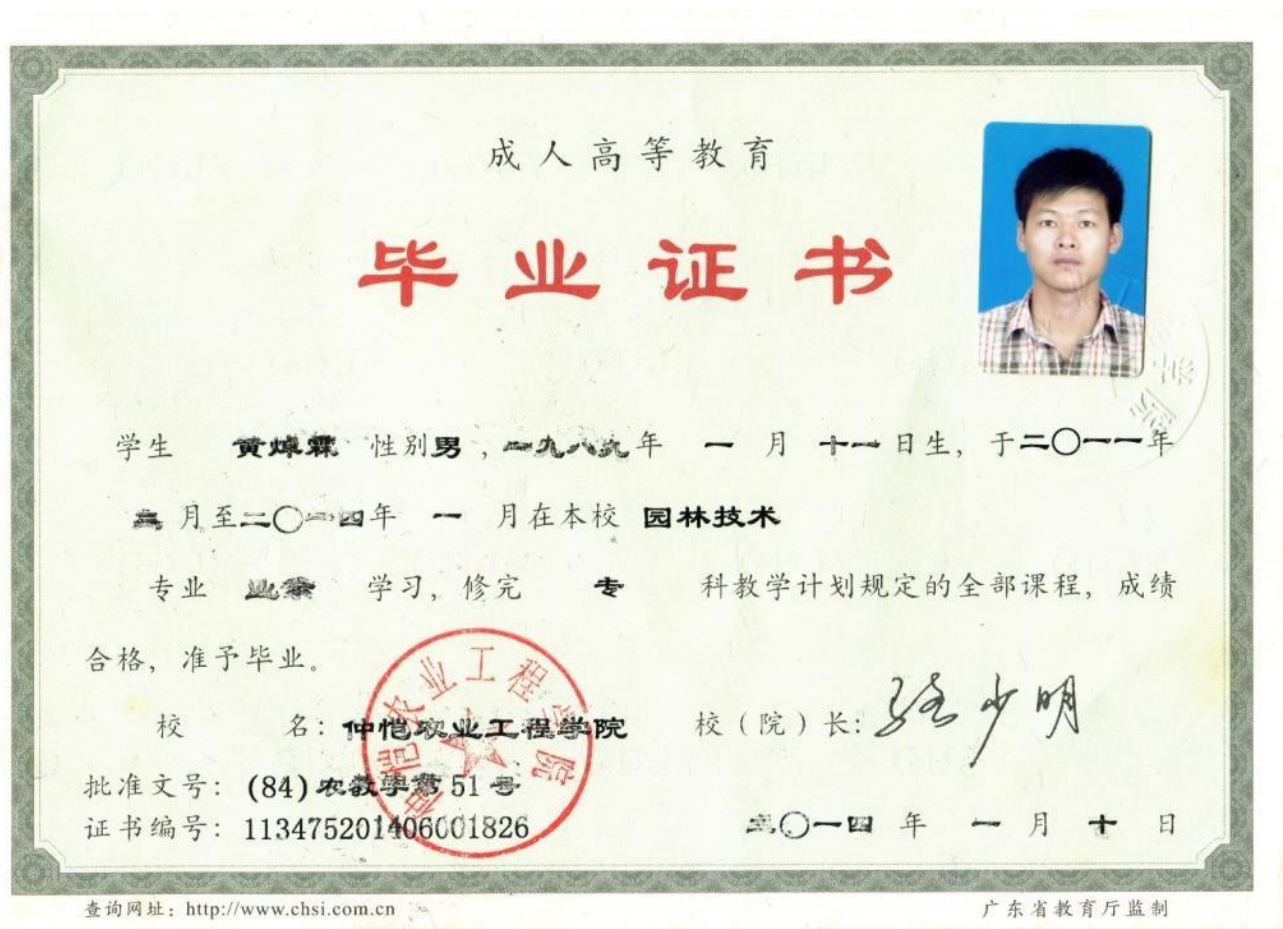 成人高等教育
毕业证书
学生 黄焯霖 性别男，一九八九年 一 月 十一日生，于二〇一一年
月至二〇一四年 一 月在本校 园林技术
专业 业余 学习，修完 专 科教学计划规定的全部课程，成绩
合格，准予毕业。
校 名：仲恺农业工程学院 校（院）长：骆少明
批准文号：(84)农教学第51号
证书编号：113475201406001826
二〇一四 年 一 月 十 日
仲恺农业工程学院
查询网址：http://www.chsi.com.cn 广东省教育厅监制